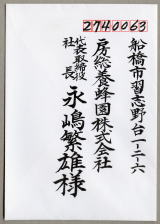 2740063
船橋市習志野台一-二-六
房総養蜂園株式会社
代表取締役
社長
永嶋繁雄様